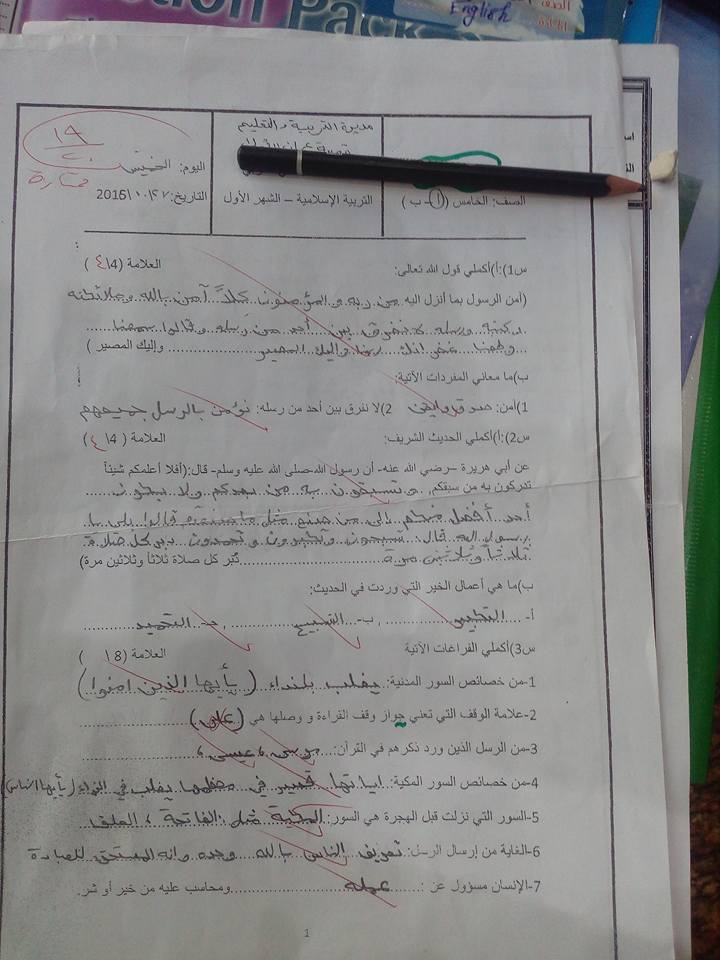 ction Pack
English
الصف
المادة
مديرية التربية والتعليم
١٩
٢٠
ممتازة
اليوم: الخميس
الصف: الخامس (أ - ب )
التربية الإسلامية – الشهر الأول
التاريخ: ٢٧/١٠/2016
س1):أ)أكملي قول الله تعالى: العلامة (4\٤ )
(آمن الرسول بما أنزل اليه من ربه و المؤمنون كلاً آمن بالله وملائكته
وكتبه ورسله لا نفرق بين أحد من رسله و قالوا سمعنا
وطعنا غفرانك ربنا وإليك المصير وإليك المصير )
ب)ما معاني المفردات الآتية:
1)آمن: صدق وأيقن 2)لا نفرق بين أحد من رسله: نؤمن بالرسل جميعهم
س2):أ)أكملي الحديث الشريف: العلامة (4\٤ )
عن أبي هريرة –رضي الله عنه- أن رسول الله-صلى الله عليه وسلم- قال:(أفلا أعلمكم شيئاً
تدركون به من سبقكم, وتسبقون به من بعدكم ولا يكون
أحد أفضل منكم إلى من صنع مثل ما صنعتم قالوا بلى يا
رسول الله قال: تسبحون وتكبرون وتحمدون دبر كل صلاة
ثلاثاً وثلاثين مرة دُبُر كل صلاة ثلاثاً وثلاثين مرة)
ب)ما هي أعمال الخير التي وردت في الحديث:
أ- التكبير , ب- التسبيح , جـ- التحميد
س3)أكملي الفراغات الآتية العلامة (8\ )
1-من خصائص السور المدنية: يغلب بلنداء (يأيها الذين امنوا)
2-علامة الوقف التي تعني جواز وقف القراءة و وصلها هي (على)
3-من الرسل الذين ورد ذكرهم في القرآن: موسى ، عيسى ،
4-من خصائص السور المكية: اياتها قصير في معظمها يغلب في النداء (يأيها الناس)
5-السور التي نزلت قبل الهجرة هي السور: المكية مثل الفاتحة ، العلق
6-الغاية من إرسال الرسل: تعريف الناس بالله وحده وانه المستحق للعبادة
7-الإنسان مسؤول عن : عمله ومحاسب عليه من خير أو شر.
1